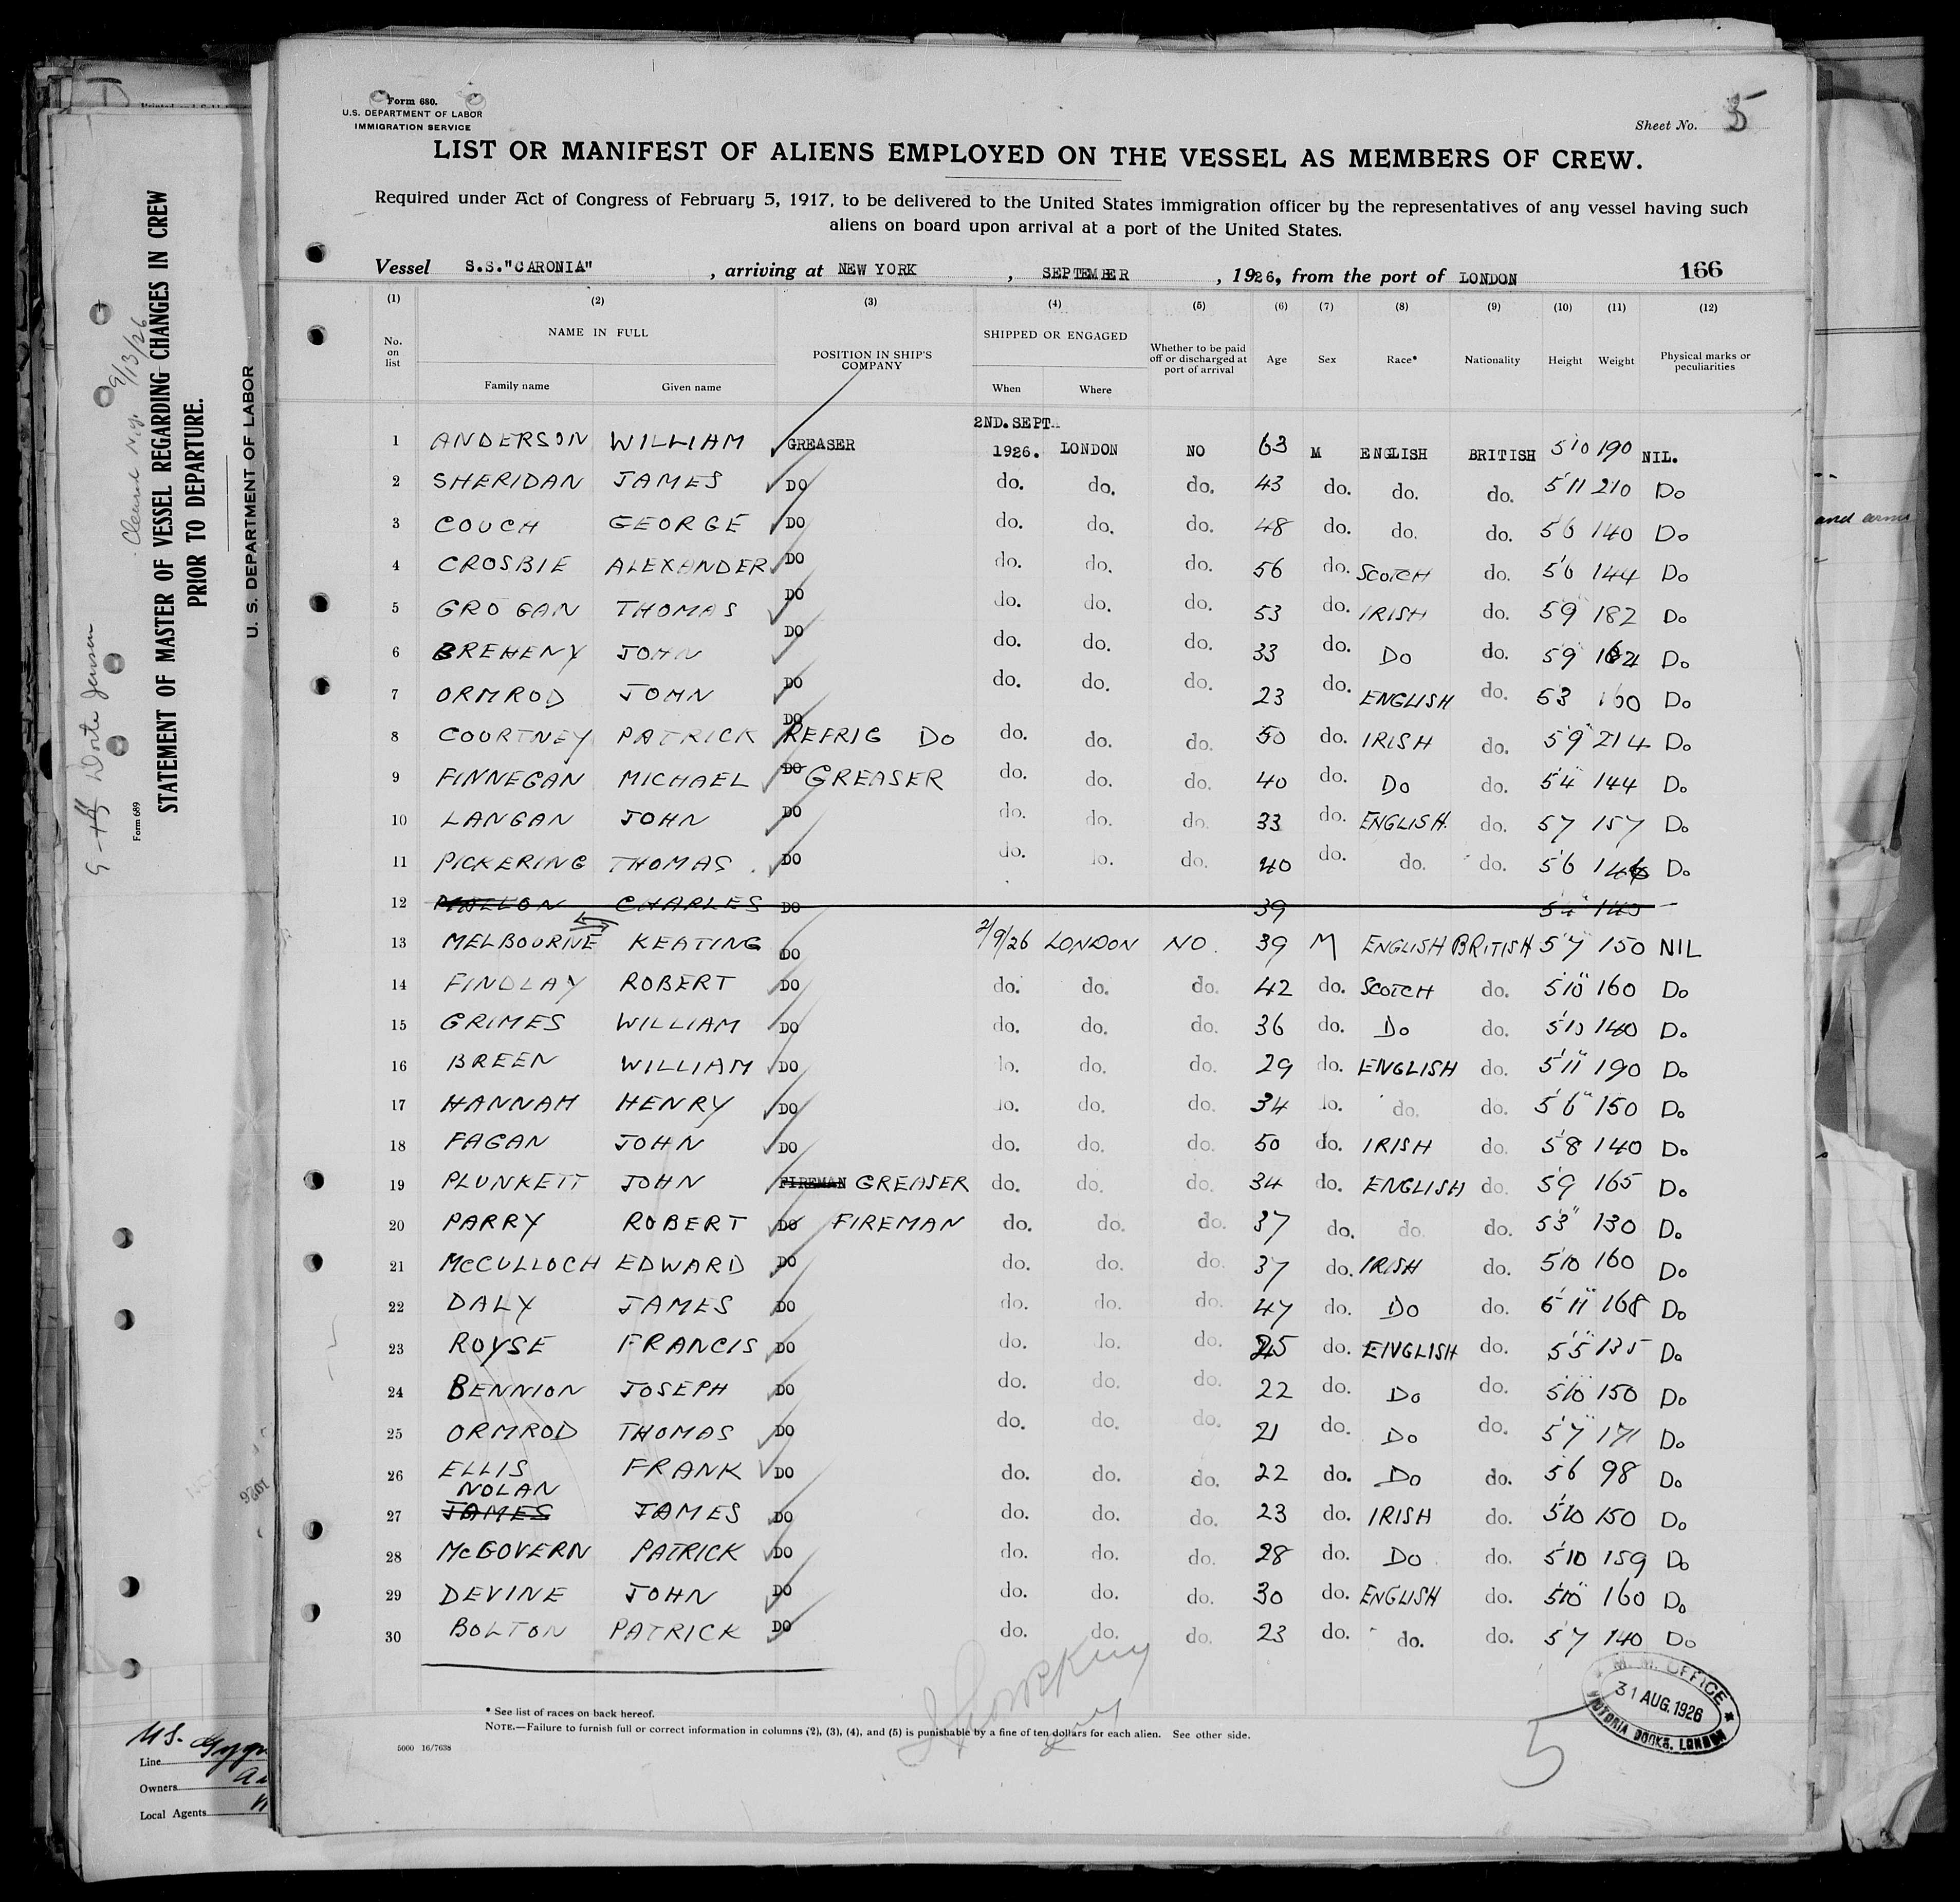 Form 680.
U.S. DEPARTMENT OF LABOR
IMMIGRATION SERVICE
Sheet No. 5
LIST OR MANIFEST OF ALIENS EMPLOYED ON THE VESSEL AS MEMBERS OF CREW.
Required under Act of Congress of February 5, 1917, to be delivered to the United States immigration officer by the representatives of any vessel having such
aliens on board upon arrival at a port of the United States.
Vessel S.S."CARONIA", arriving at NEW YORK, SEPTEMBER, 1926, from the port of LONDON
166
(1) (2) (3) (4) (5) (6) (7) (8) (9) (10) (11) (12)
No. on list NAME IN FULL Family name Given name POSITION IN SHIP'S COMPANY SHIPPED OR ENGAGED When Where Whether to be paid off or discharged at port of arrival Age Sex Race* Nationality Height Weight Physical marks or peculiarities
2ND.SEPT.
1 ANDERSON WILLIAM GREASER 1926. LONDON NO 63 M ENGLISH BRITISH 5'10 190 NIL.
2 SHERIDAN JAMES DO do. do. do. 43 do. do. do. 5'11 210 Do
3 COUCH GEORGE DO do. do. do. 48 do. do. do. 5 6 140 Do
4 CROSBIE ALEXANDER DO do. do. do. 56 do. SCOTCH do. 5'6 144 Do
5 GROGAN THOMAS DO do. do. do. 53 do. IRISH do. 5 9 182 Do
6 BREHENY JOHN DO do. do. do. 33 do. Do do. 5 9 164 Do
7 ORMROD JOHN DO do. do. do. 23 do. ENGLISH do. 5 3 160 Do
8 COURTNEY PATRICK DO REFRIG DO do. do. do. 50 do. IRISH do. 5'9" 214 Do
9 FINNEGAN MICHAEL DO GREASER do. do. do. 40 do. Do do. 5'4" 144 Do
10 LANGAN JOHN DO do. do. do. 33 do. ENGLISH. do. 5 7 157 Do
11 PICKERING THOMAS DO do. do. do. 40 do. do. do. 5'6 146 Do
12 CHARLES DO 39
13 MELBOURNE KEATING DO 2/9/26 LONDON NO. 39 M ENGLISH BRITISH 5'7 150 NIL
14 FINDLAY ROBERT DO do. do. do. 42 do. SCOTCH do. 5'10" 160 Do
15 GRIMES WILLIAM DO do. do. do. 36 do. Do do. 5'10 140 Do
16 BREEN WILLIAM DO do. do. do. 29 do. ENGLISH do. 5'11" 190 Do
17 HANNAH HENRY DO do. do. do. 34 do. do. do. 5'6" 150 Do
18 FAGAN JOHN DO do. do. do. 50 do. IRISH do. 5'8 140 Do
19 PLUNKETT JOHN FIREMAN GREASER do. do. do. 34 do. ENGLISH do. 5'9 165 Do
20 PARRY ROBERT DO FIREMAN do. do. do. 37 do. do. do. 5'3" 130 Do
21 McCULLOCH EDWARD DO do. do. do. 37 do. IRISH do. 5'10 160 Do
22 DALY JAMES DO do. do. do. 47 do. Do do. 5'11" 168 Do
23 ROYSE FRANCIS DO do. do. do. 25 do. ENGLISH do. 5'5" 135 Do
24 BENNION JOSEPH DO do. do. do. 22 do. Do do. 5'10" 150 Do
25 ORMROD THOMAS DO do. do. do. 21 do. Do do. 5'7" 171 Do
26 ELLIS FRANK DO do. do. do. 22 do. Do do. 5 6 98 Do
NOLAN
27 JAMES JAMES DO do. do. do. 23 do. IRISH do. 5'10 150 Do
28 McGOVERN PATRICK DO do. do. do. 28 do. Do do. 5'10 159 Do
29 DEVINE JOHN DO do. do. do. 30 do. ENGLISH do. 5'10" 160 Do
30 BOLTON PATRICK DO do. do. do. 23 do. do. do. 5'7 140 Do
* See list of races on back hereof.
NOTE.—Failure to furnish full or correct information in columns (2), (3), (4), and (5) is punishable by a fine of ten dollars for each alien. See other side.
5000 16/7638
5
M. M. OFFICE
31 AUG. 1926
VICTORIA DOCKS. LONDON
STATEMENT OF MASTER OF VESSEL REGARDING CHANGES IN CREW
PRIOR TO DEPARTURE.
U. S. DEPARTMENT OF LABOR
Form 689
Cleared N.Y. 9/13/26
Line
Owners
Local Agents
and arms